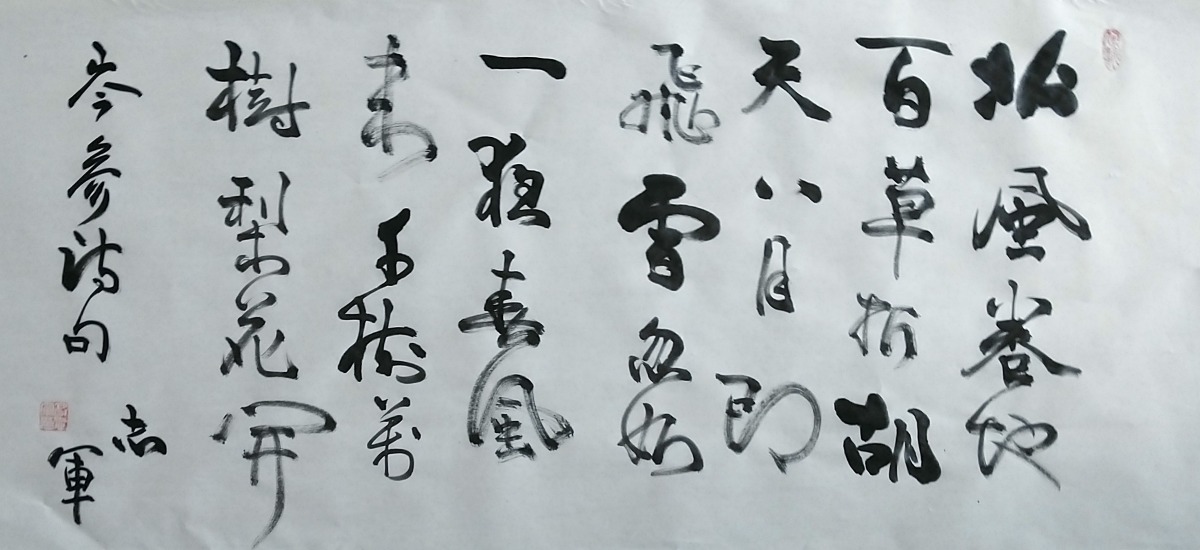 北風卷地
百草折胡
天八月即
飛雪忽如
一夜春風
來千樹萬
樹梨花開
岑參詩句
志軍